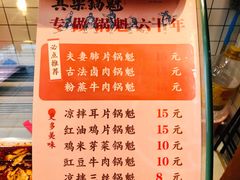 专做锅魁六十年
必点推荐
夫妻肺片锅魁 元
古法卤肉锅魁 元
粉蒸牛肉锅魁 元
更多美味
凉拌耳片锅魁 15元
红油鸡片锅魁 15元
鸡米芽菜锅魁 10元
豇豆牛肉锅魁 10元
凉拌三丝锅魁 8元